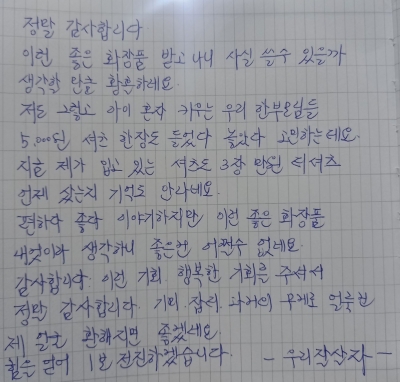 정말 감사합니다
이런 좋은 화장품 받고나니 사실 쓸수 있을까
생각할 만큼 황홀하네요.
저도 그렇고 아이 혼자 키우는 우리 한부모님들
5,000원 셔츠 한장도 들었다 놓았다 고민하는데요.
지금 제가 입고 있는 셔츠도 3장 만원 티셔츠
언제 샀는지 기억도 안나네요.
편하다 좋다 이야기하지만 이런 좋은 화장품
내것이라 생각하니 좋은건 어쩔수 없네요.
감사합니다. 이런 기회 행복한 기회를 주셔서
정말 감사합니다. 기미 잡티 과거의 무게로 얼룩진
제 얼굴 환해지면 좋겠네요.
힘을 얻어 1보 전진하겠습니다. - 우리